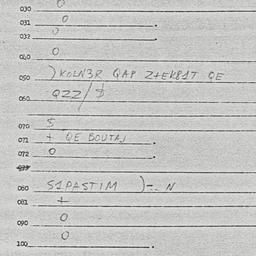 030 0
031 0
032 0
040 0
050 )KOLN3R QAP Z+EK81T QE
060 QZZ/
070 5
071 + QE BOUTAJ
072 0
073
080 S1PASTIM )-. N
081 +
090 0
0
100